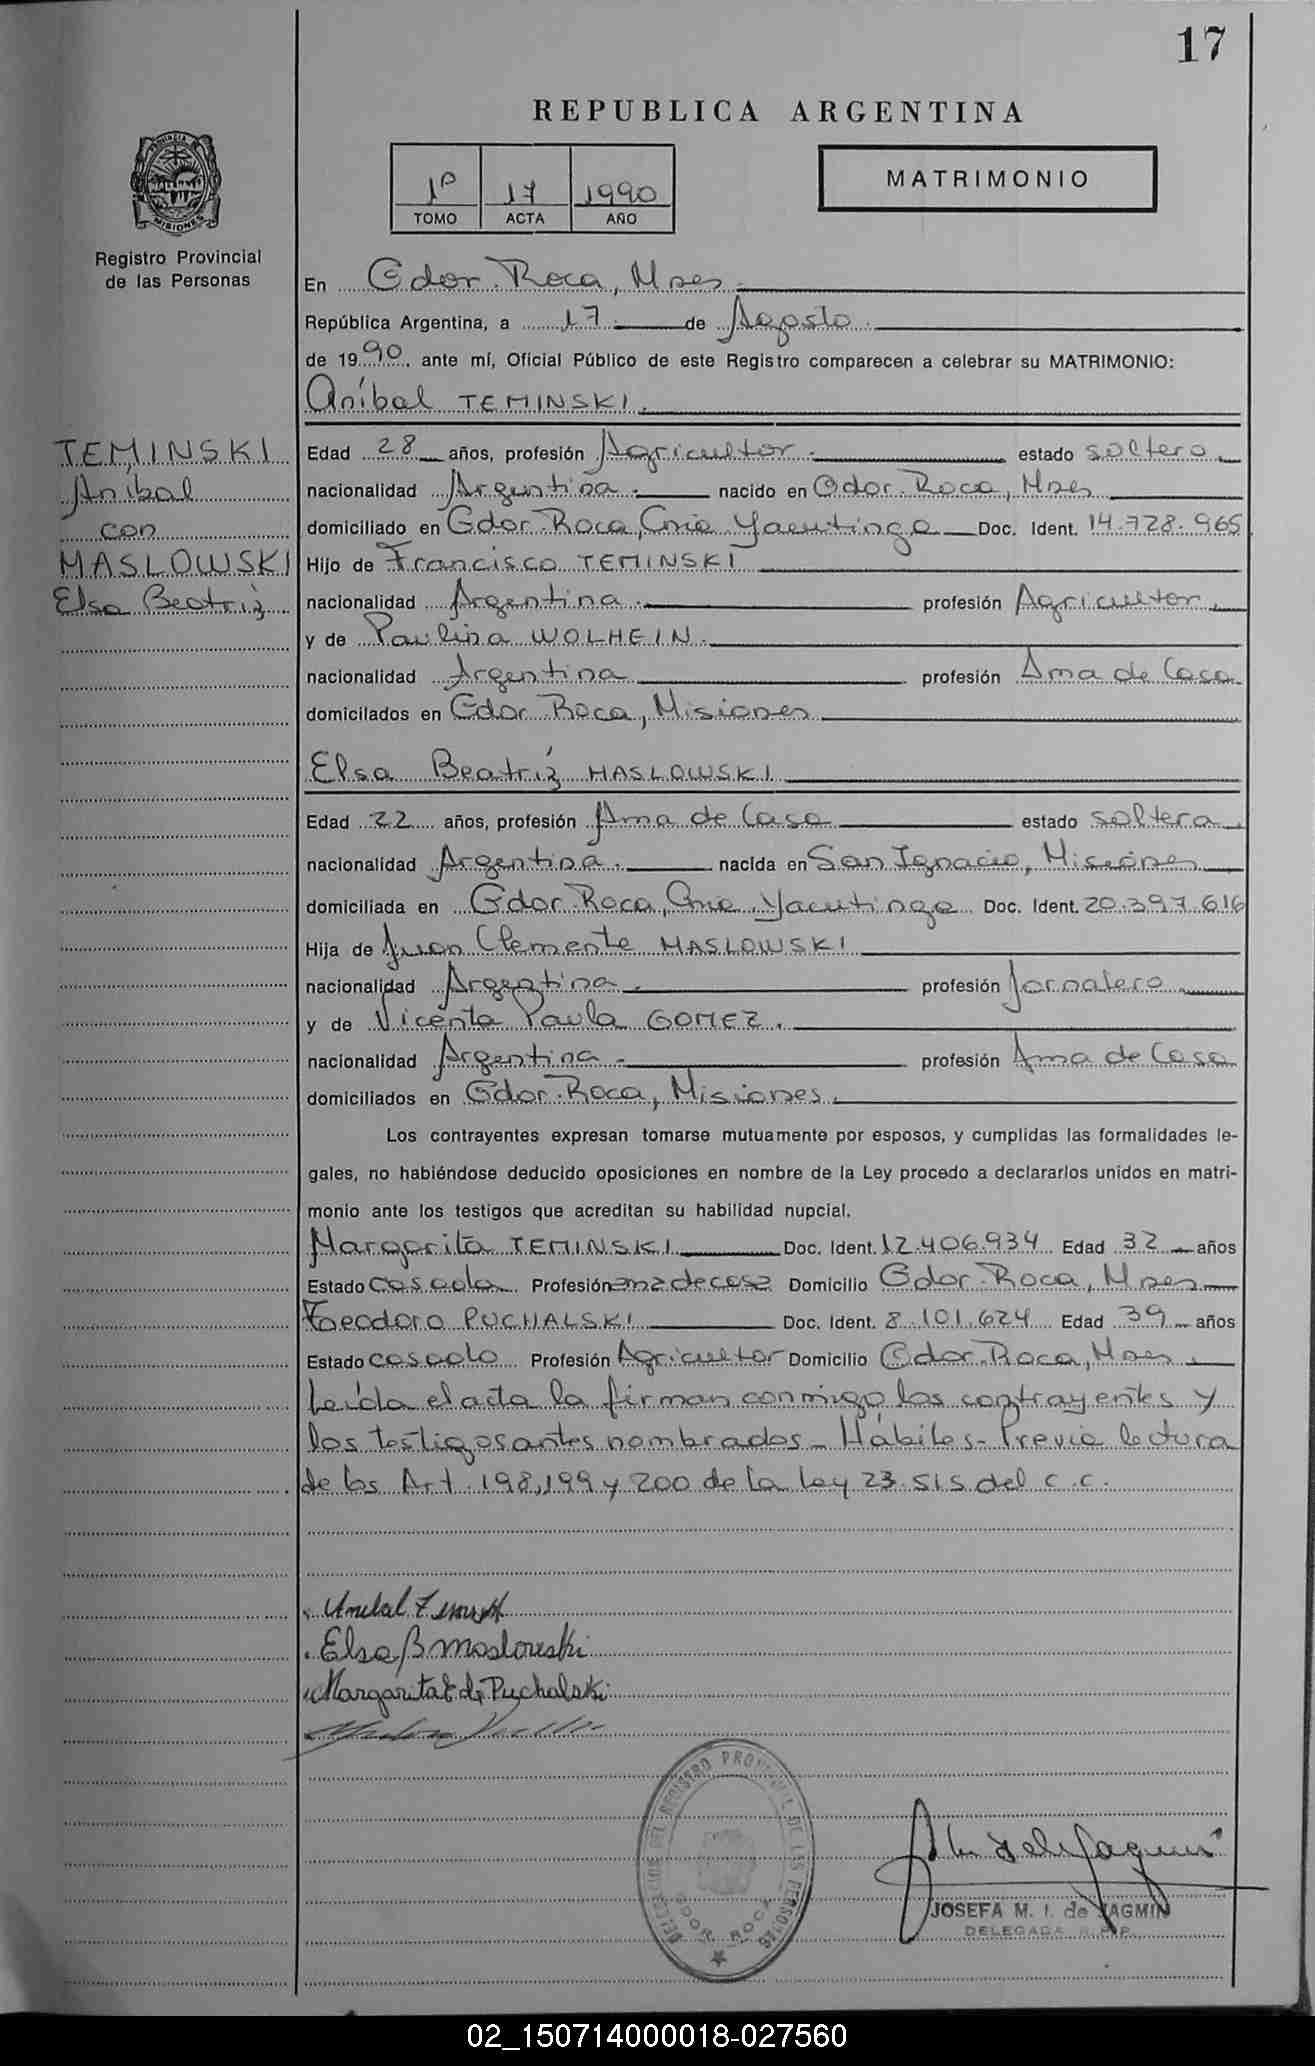 17
REPUBLICA ARGENTINA
1º 17 1990
TOMO ACTA AÑO
MATRIMONIO
PROVINCIA DE MISIONES
Registro Provincial
de las Personas
En Gdor. Roca, Mnes
República Argentina, a 17 de Agosto
de 1990, ante mí, Oficial Público de este Registro comparecen a celebrar su MATRIMONIO:
Aníbal TEMINSKI
TEMINSKI
Aníbal
con
MASLOWSKI
Elsa Beatríz
Edad 28 años, profesión Agricultor estado soltero
nacionalidad Argentina nacido en Gdor. Roca, Mnes
domiciliado en Gdor. Roca, Cnia Yacutinga Doc. Ident. 14.728.965
Hijo de Francisco TEMINSKI
nacionalidad Argentina profesión Agricultor
y de Paulina WOLHEIN
nacionalidad Argentina profesión Ama de Casa
domicilados en Gdor. Roca, Misiones
Elsa Beatríz MASLOWSKI
Edad 22 años, profesión Ama de Casa estado soltera
nacionalidad Argentina nacida en San Ignacio, Misiones
domiciliada en Gdor. Roca, Cnia. Yacutinga Doc. Ident. 20.397.616
Hija de Juan Clemente MASLOWSKI
nacionalidad Argentina profesión Jornalero
y de Vicenta Paula GOMEZ
nacionalidad Argentina profesión Ama de Casa
domiciliados en Gdor. Roca, Misiones
Los contrayentes expresan tomarse mutuamente por esposos, y cumplidas las formalidades le-
gales, no habiéndose deducido oposiciones en nombre de la Ley procedo a declararlos unidos en matri-
monio ante los testigos que acreditan su habilidad nupcial.
Margarita TEMINSKI Doc. Ident. 12.406.934 Edad 32 años
Estado casada Profesión ama de casa Domicilio Gdor. Roca, Mnes
Teodoro PUCHALSKI Doc. Ident. 8.101.624 Edad 39 años
Estado casado Profesión Agricultor Domicilio Gdor. Roca, Mnes
Leída el acta la firman conmigo los contrayentes y
los testigos antes nombrados - Hábiles - Previa lectura
de los Art. 198, 199 y 200 de la Ley 23.515 del C.C.
Elsa B Maslowski
Margarita T de Puchalski
DELEGACION DEL REGISTRO PROVINCIAL DE LAS PERSONAS
GDOR. ROCA
JOSEFA M. I. de JAGMIN
DELEGADA R.P.P.
02_150714000018-027560